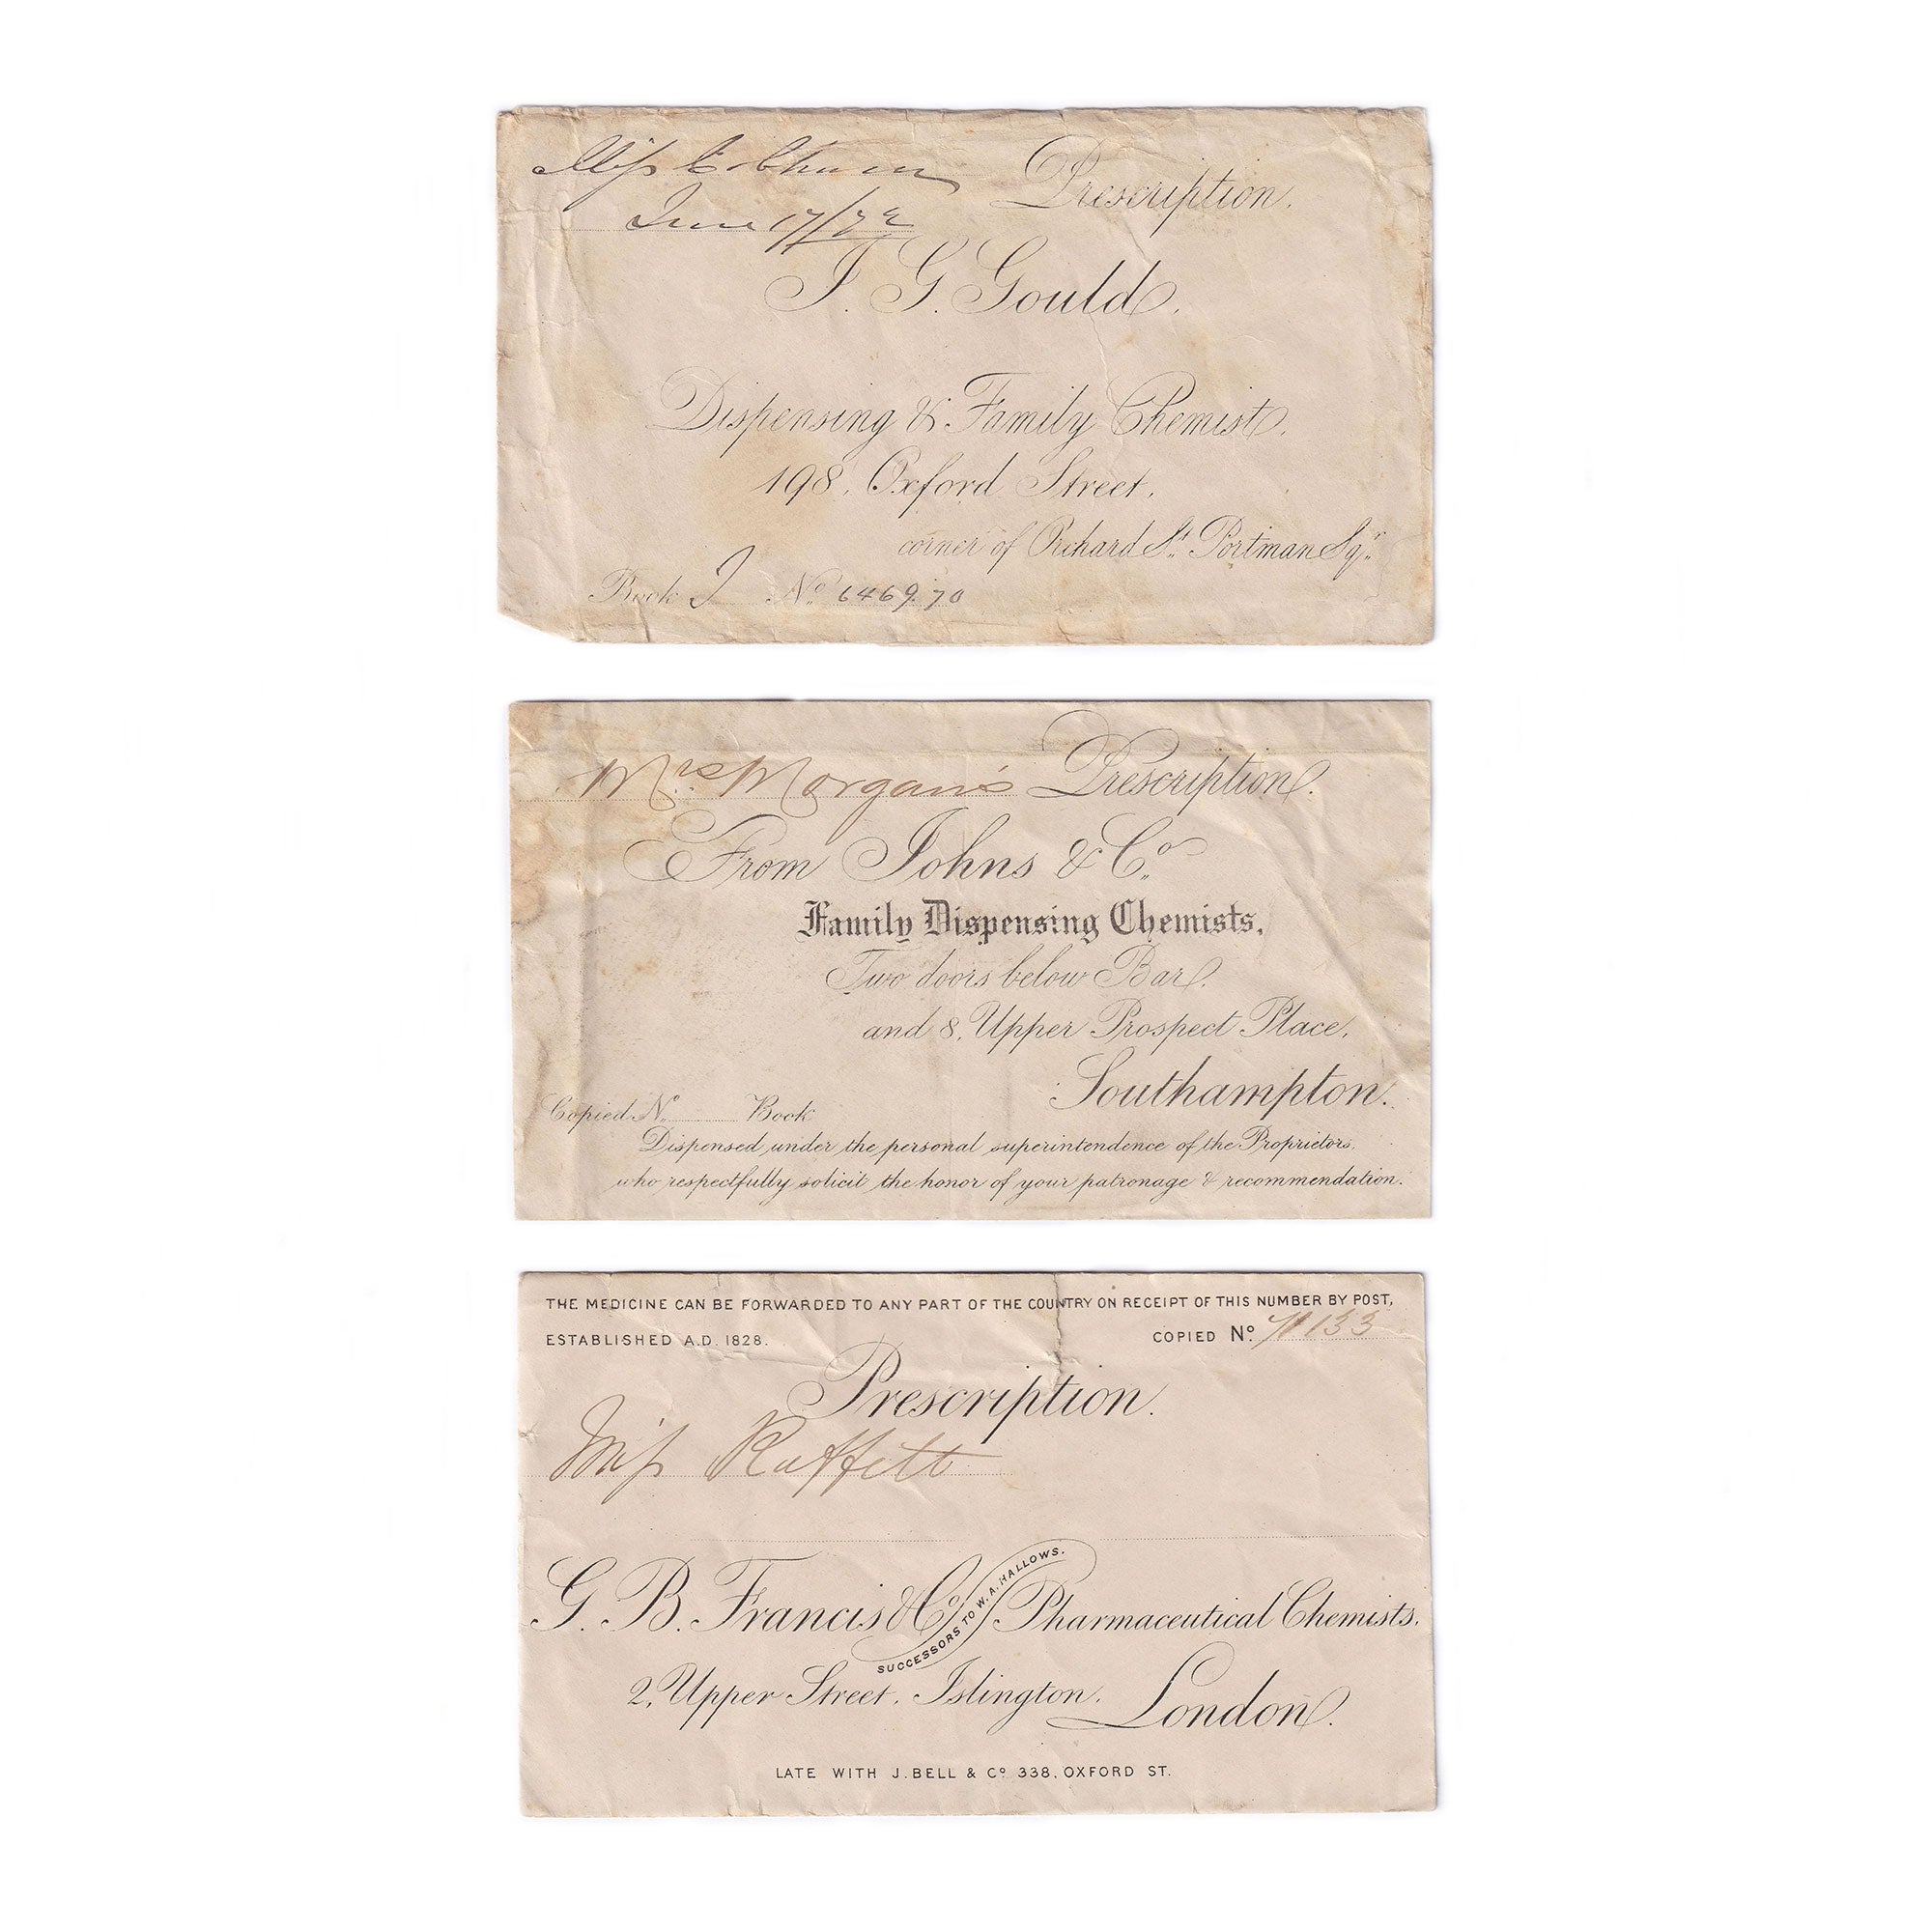 Miss
Prescription.
June 17/72
I. G. Gould.
Dispensing & Family Chemist.
198, Oxford Street,
corner of Orchard St. Portman Sqr.
Book I No 6469.70
Mrs. Morgan's Prescription.
From Johns & Co.
Family Dispensing Chemists,
Two doors below Bar,
and 8, Upper Prospect Place,
Southampton.
Copied No. Book
Dispensed under the personal superintendence of the Proprietors,
who respectfully solicit the honor of your patronage & recommendation.
THE MEDICINE CAN BE FORWARDED TO ANY PART OF THE COUNTRY ON RECEIPT OF THIS NUMBER BY POST,
ESTABLISHED A.D. 1828. COPIED No.
Prescription.
Miss
G. B. Francis & Co. SUCCESSORS TO W. A. HALLOWS. Pharmaceutical Chemists.
2, Upper Street, Islington, London.
LATE WITH J. BELL & Co. 338, OXFORD ST.